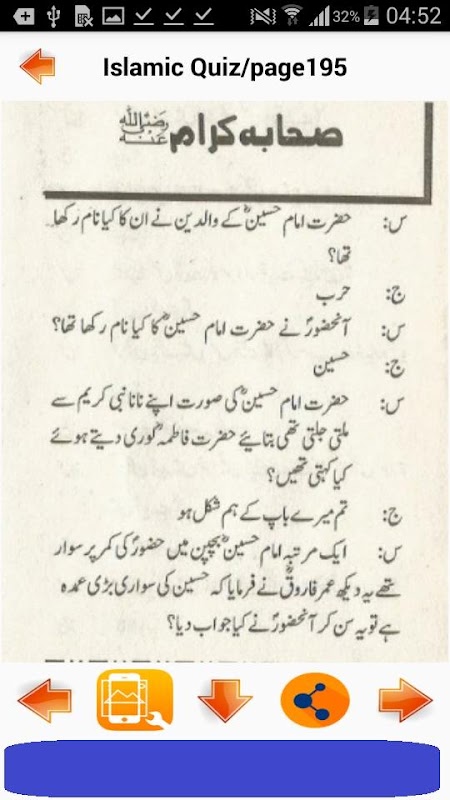 32% 04:52
Islamic Quiz/page195
صحابہ کرام رضی اللہ عنہ
س: حضرت امام حسینؓ کے والدین نے ان کا کیا نام رکھا
تھا؟
ج: حرب
س: آنحضورؐ نے حضرت امام حسینؓ کا کیا نام رکھا تھا؟
ج: حسین
س: حضرت امام حسینؓ کی صورت اپنے نانا نبی کریم سے
ملتی جلتی تھی بتائیے حضرت فاطمہؓ لوری دیتے ہوئے
کیا کہتی تھیں؟
ج: تم میرے باپ کے ہم شکل ہو
س: ایک مرتبہ امام حسینؓ بچپن میں حضورؐ کی کمر پر سوار
تھے یہ دیکھ عمر فاروقؓ نے فرمایا کہ حسین کی سواری بڑی عمدہ
ہے تو یہ سن کر آنحضورؐ نے کیا جواب دیا؟